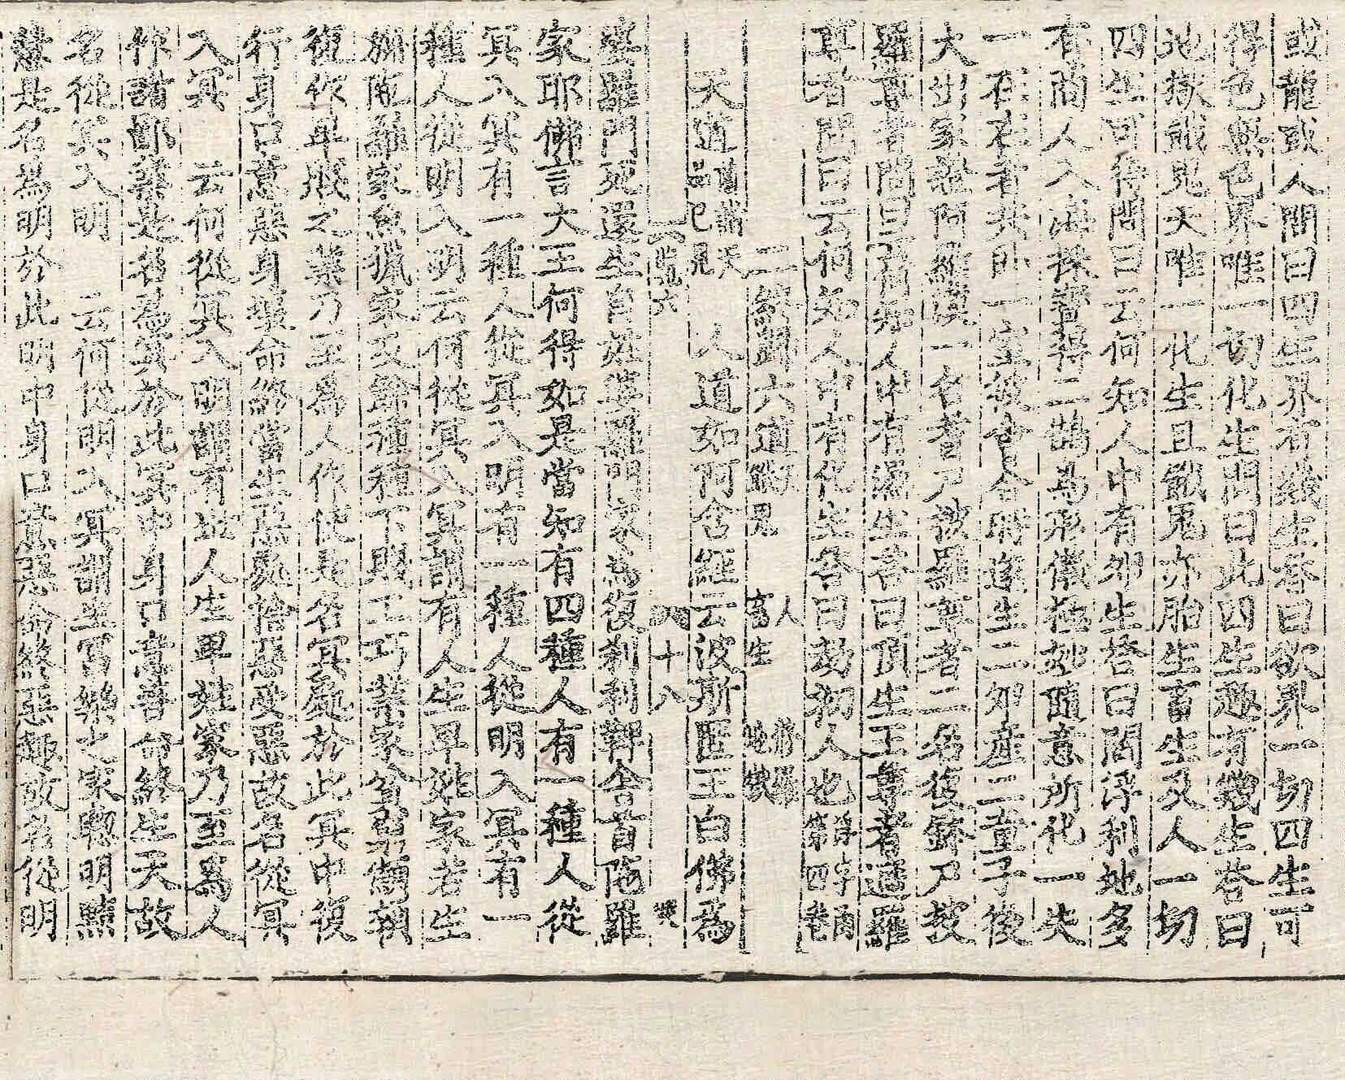 或龍或人問曰四生界有幾生答曰欲界一切四生可
得色無色界唯一切化生問曰此四生趣有幾生答曰
地獄餓鬼天唯一化生且餓鬼亦胎生畜生及人一切
四生可得問曰云何知人中有卵生答曰閻浮利地多
有商人入海採寶得二鵠為形儀極妙隨意所化一失
一在在者共卧一室彼會合時遂生二卵產二童子後
大出家證阿羅漢一名耆尸披羅尊者二名復鉢尸披
羅尊者問曰云何知人中有濕生答曰頂生王尊者遮羅
尊者問曰云何知人中有化生答曰劫初人也 第四卷
二辯六道 人 畜生 地獄
天道諸天品已見 人道如阿含經云波斯匿王白佛為
六 八十八
婆羅門死還生自姓婆羅門家為復剎利鞞舍首陁羅
家耶佛言大王何得如是當知有四種人有一種人從
冥入冥有一種人從冥入明有一種人從明入冥有一
種人從明入明云何從冥入冥謂有人生卑姓家若生
旃陁羅家魚獵家及餘種種下賤工巧業家貧窮顦顇
復作卑賤之業乃至為人作使是名冥處於此冥中復
行身口意惡身壞命終當生惡處倍惡受惡故名從冥
入冥 云何從冥入明謂有世人生卑姓家乃至為人
作諸鄙業是名為冥於此冥中身口意善命終生天故
名從冥入明 云何從明入冥謂生富樂之家聰明點
慧是名為明於此明中身口意惡命終惡趣故名從明